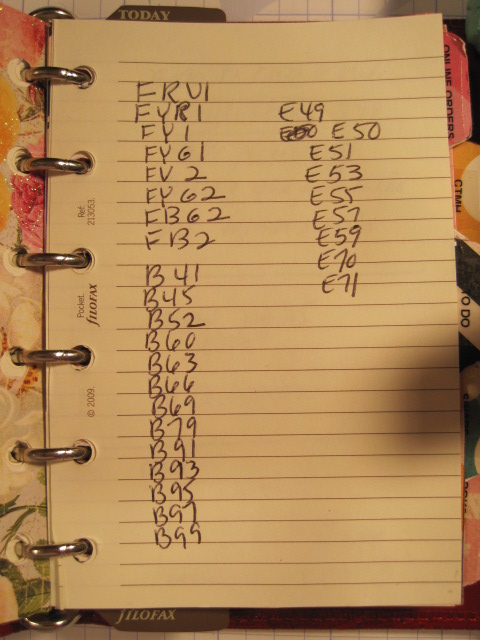 TODAY
FRV1
FYR1
FY1
FYG1
FV2
FYG2
FBG2
FB2
B41
B45
B52
B60
B63
B66
B69
B79
B91
B93
B95
B97
B99
E49
E50 E50
E51
E53
E55
E57
E59
E70
E71
Ref: 213053.
Pocket. FILOFAX
© 2009.
ONLINE ORDERS
GTMH
TO DO
FILOFAX